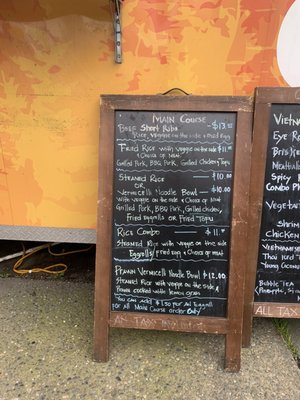 Main Course
Beef Short Ribs - $13.00
Rice, veggie on the side + Fried Egg
Fried Rice with veggie on the side $11.00
+ Choice of meat.
Grilled Pork, BBQ Pork, Grilled Chicken, Tofu
Steamed Rice — $10.00
OR
Vermicelli Noodle Bowl, — $10.00
with veggie on the side + Choice of Meat
Grilled Pork, BBQ Pork, Grilled Chicken,
Fried Eggrolls or Fried Tofu
Rice Combo — $11.00
Steamed Rice with veggie on the side
Eggroll, Fried Egg + Choice of Meat
Prawn Vermicelli Noodle Bowl $12.00
Steamed Rice with veggie on the side
Prawn cooked with lemon grass
You can add $1.50 per an Eggroll
for all Main Course order Only
Vietnam
Eye R
Bris
Meatball
Spicy
Combo P
Veget
Shrim
Chicken
Vietnamese
Thai Iced T
Young Coconut
Bubble Tea
All Tax